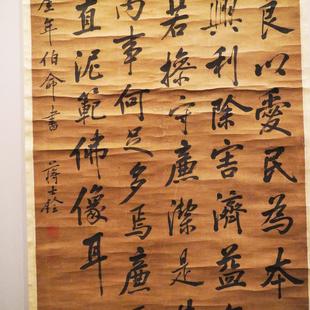 良以愛民為本
興利除害濟益
若操守廉潔是
內事何足多焉廉
直泥範佛像耳
年伯命書
蔣士銓